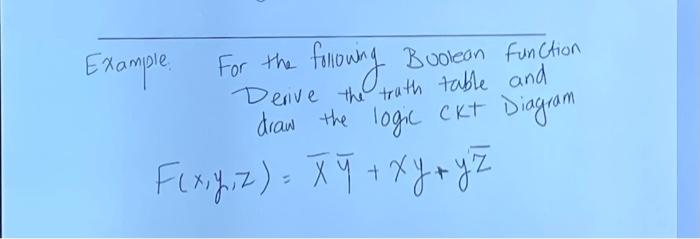 Example. For the following Boolean function
Derive the truth table and
draw the logic CKT Diagram
F(x,y,z) = X̅ y̅ + xy + yz̅